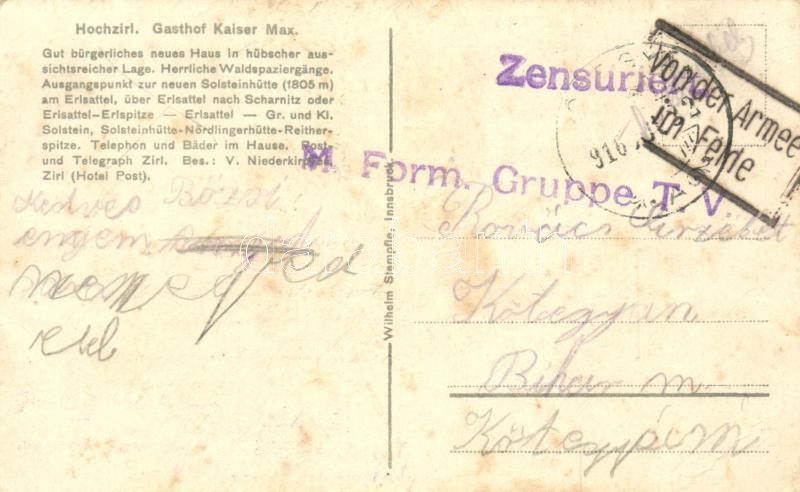 Hochzirl. Gasthof Kaiser Max.
Gut bürgerliches neues Haus in hübscher aus-
sichtsreicher Lage. Herrliche Waldspaziergänge.
Ausgangspunkt zur neuen Solsteinhütte (1805 m)
am Erlsattel, über Erlsattel nach Scharnitz oder
Erlsattel-Erlspitze — Erlsattel — Gr. und Kl.
Solstein, Solsteinhütte-Nördlingerhütte-Reither-
spitze. Telephon und Bäder im Hause. Post-
und Telegraph Zirl. Bes.: V. Niederkircher,
Zirl (Hotel Post).
Kedves Bözsi
engem
Wilhelm Stempfle, Innsbruck
Zensuriert
M. Form. Gruppe T. V
von der Armee
im Felde
Kovács Erzébet
Kötegyán
Bihar m.
Kötegyám